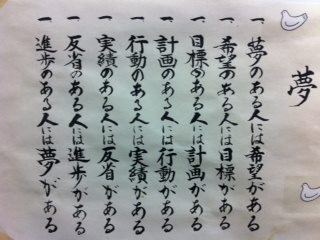 夢
一、夢のある人には希望がある
一、希望のある人には目標がある
一、目標のある人には計画がある
一、計画のある人には行動がある
一、行動のある人には実績がある
一、実績のある人には反省がある
一、反省のある人には進歩がある
一、進歩のある人には夢がある